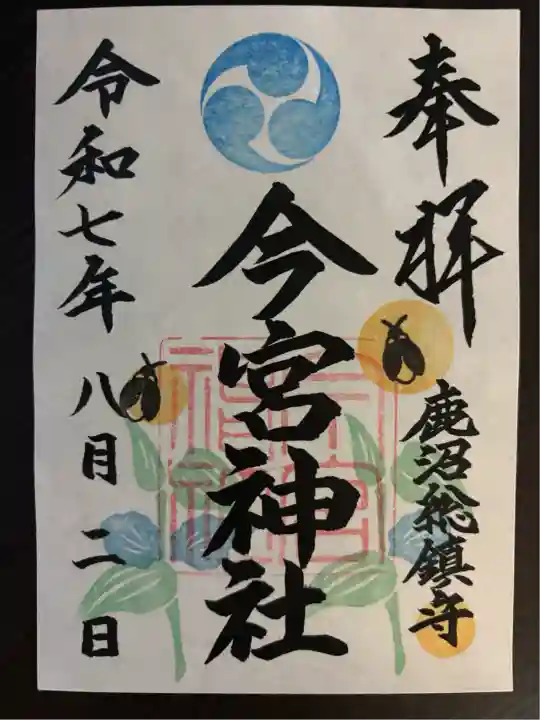 奉拝
鹿沼総鎮守
今宮神社
令和七年 八月二日